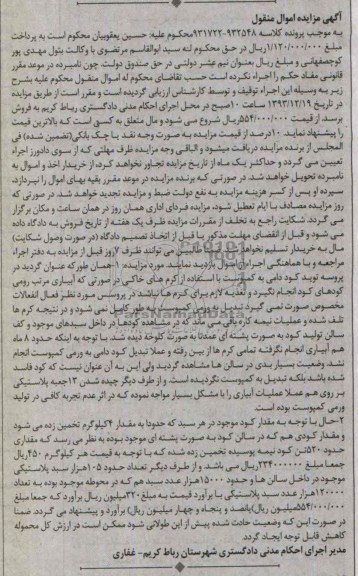 آگهی مزایده اموال منقول
به موجب پرونده کلاسه ۹۳۲۵۴۸-۹۳۱۷۲۲ محکوم علیه: حسین یعقوبیان محکوم است به پرداخت
مبلغ ۱/۱۲۰/۰۰۰/۰۰۰ ریال در حق محکوم له سید ابوالقاسم مرتضوی با وکالت بتول مهدی پور
کوچصفهانی و مبلغ ریال بعنوان نیم عشر دولتی در حق صندوق دولت. چون نامبرده در موعد مقرر
قانونی مفاد حکم را اجراء نکرده است حسب تقاضای محکوم له اموال منقول محکوم علیه بشرح
زیر به وسیله این اجراء توقیف و توسط کارشناس ارزیابی گردیده است و مقرر است از طریق مزایده
در تاریخ ۱۳۹۳/۱۲/۱۹ ساعت ۱۰ صبح در محل اجرای احکام مدنی دادگستری رباط کریم به فروش
برسد. از قیمت ۵۵۴/۰۰۰/۰۰۰ ریال شروع می شود و مال متعلق به کسی است که بالاترین قیمت
را پیشنهاد نماید. ۱۰ درصد از قیمت مزایده به صورت وجه نقد یا چک بانکی (تضمین شده) فی
المجلس از برنده مزایده دریافت میشود و الباقی وجه مزایده ظرف مهلتی که از سوی دادورز اجراء
تعیین می گردد و حداکثر یک ماه از تاریخ مزایده تجاوز نخواهد کرد، از خریدار اخذ و اموال به
نامبرده تحویل خواهد شد. در صورتی که برنده مزایده در موعد مقرر بقیه بهای اموال را نپردازد،
سپرده او پس از کسر هزینه مزایده به نفع دولت ضبط و مزایده تجدید خواهد شد. در صورتی که
روز مزایده مصادف با ایام تعطیل شود، مزایده فردای اداری همان روز در همان ساعت و مکان برگزار
می گردد. شکایت راجع به تخلف از مقررات مزایده ظرف یک هفته از تاریخ فروش به دادگاه داده
می شود و قبل از انقضای مهلت مذکور یا قبل از اتخاذ تصمیم دادگاه (در صورت وصول شکایت)
مال به خریدار تسلیم نخواهد شد. طالبین می توانند ظرف ۷ روز قبل از مزایده به دفتر اجراء
مراجعه و با هماهنگی اجراء از اموال بازدید نمایند. مورد مزایده: ۱-همان طور که عنوان گردید در
پروسه تولید کود دامی به کمپوست با استفاده از کرم های خاکی در صورتی که آبیاری مرتب رومی
کودهای کود انجام نگیرد و تغذیه لازم برای کرم ها نباشد در پروسس مورد نظر فعال انفعالات
مخصوص صورت نمی گیرد تبدیل به ورمی کمپوست به طور کامل نمی شود و در نتیجه کرم ها
تلف شده و عملیات نیمه کاره باقی می ماند که در مشاهده کودها در داخل سبدهای موجود و کف
سالن تولید کود به صورت پشته ای عمدتا به صورت کلوخه دیده شد. با توجه به اینکه حدود ۸ ماه
هم آبیاری انجام نگرفته تمامی کرم ها از بین رفته و عملا تبدیل کود دامی به ورمی کمپوست انجام
نشد. وضعیت بسیار بدی در سالن ها مشاهده گردید ولی این به آن عنوان نیست که کود فاسد
شده باشد بلکه تبدیل به کمپوست نگردیده است. و از طرف دیگر چیده شدن ۱۳ جعبه پلاستیکی
بر روی هم عملا عملیات آبیاری را با مشکل بسیار مواجه نموده که در اثر عدم تجربه کافی در تولید
ورمی کمپوست بوده است.
۲-حال با توجه به مقدار کود موجود در هر سبد که حدودا به مقدار ۴ کیلوگرم تخمین زده می شود
و مقدار کودی هم که در سالن کود به صورت پشته ای موجود بوده به نظر می رسد که مقداری
حدود ۵۲۰ تن کود نیمه پوسیده تخمین زده شده که با توجه به قیمت هر کیلوگرم ۴۵۰ ریال
جمعا مبلغ ۲۳۴۰۰۰۰۰۰ ریال می باشد و از طرف دیگر تعداد حدود ۱۰۵ هزار سبد پلاستیکی
موجود در داخل سالن ها و حدود ۱۵۰۰۰ هزار عدد سبد هم که در محوطه موجود بوده به تعداد
۱۲۰۰۰۰ هزار عدد سبد پلاستیکی با برآورد قیمت به مبلغ ۳۲۰ میلیون ریال برآورد که جمعا مبلغ
۵۵۴/۰۰۰/۰۰۰ میلیون ریال (پانصد و پنجاه و چهار میلیون ریال) برآورد و پیشنهاد می گردد. ضمنا
در صورت این که وضعیت حادث شده پیش از این طولانی شود ممکن است در ارزش کل محموله
کاهش قابل توجه ایجاد گردد.
مدیر اجرای احکام مدنی دادگستری شهرستان رباط کریم - غفاری